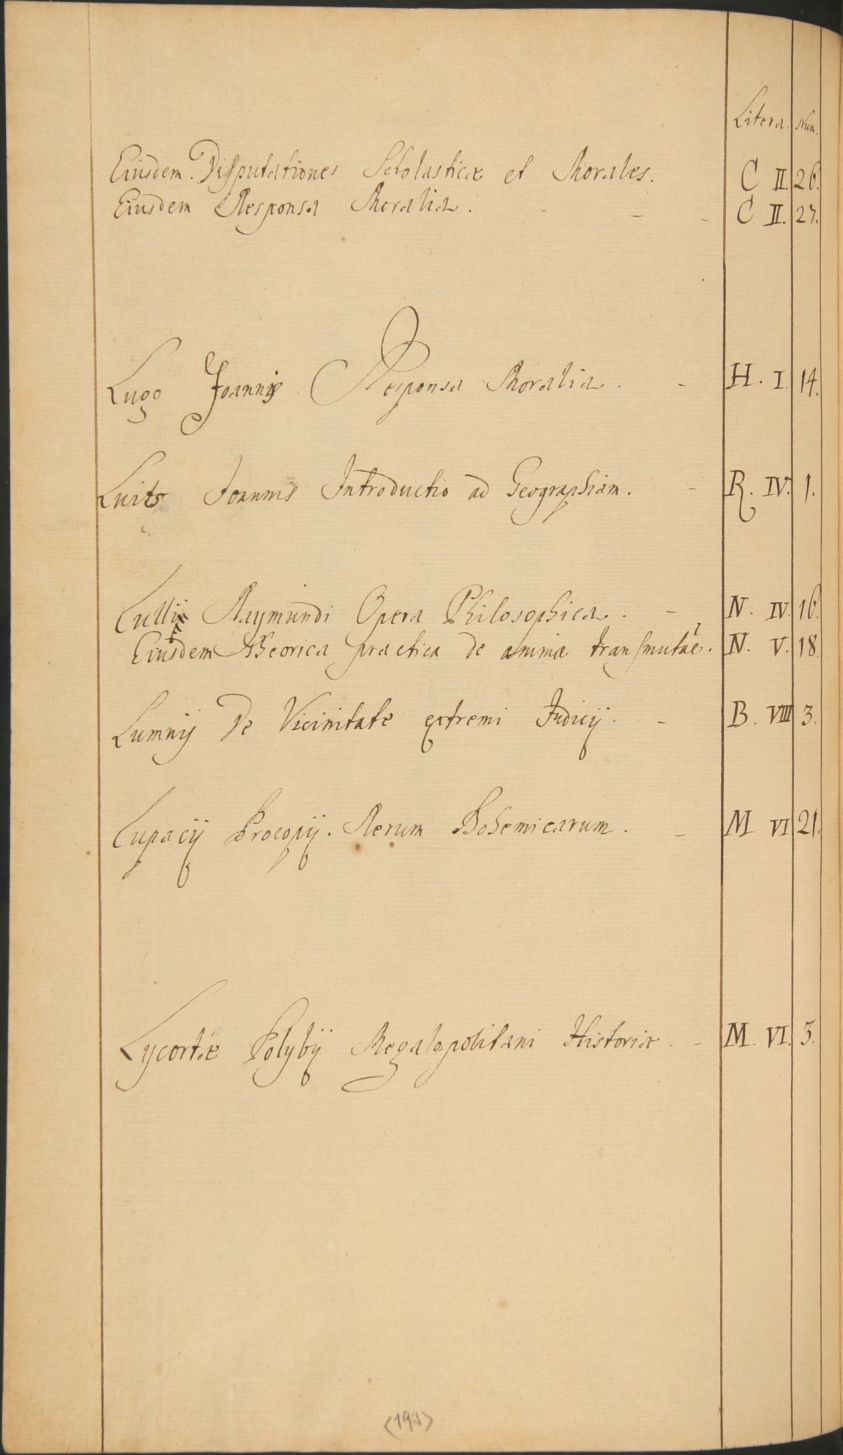 Litera. Num.
Eiusdem. Disputationes Scholasticæ et Morales. C II. 26.
Eiusdem Responsa Moralia. - - - C II. 27.
Lugo Joannis Responsa Moralia. - H. I. 14.
Luits Joannis Introductio ad Geographiam. - R. IV. 1.
Lullij Raymundi Opera Philosophica. - N. IV. 16.
Eiusdem Theorica practica de animæ transmutãe. N. V. 18.
Lumnij De Vicinitate extremi Judicij. - B. VIII 3.
Lupacij Procopij. Rerum Bohemicarum. - M VI 21.
Lycortæ Polybij Megalopolitani Historiæ. - M. VI. 5.